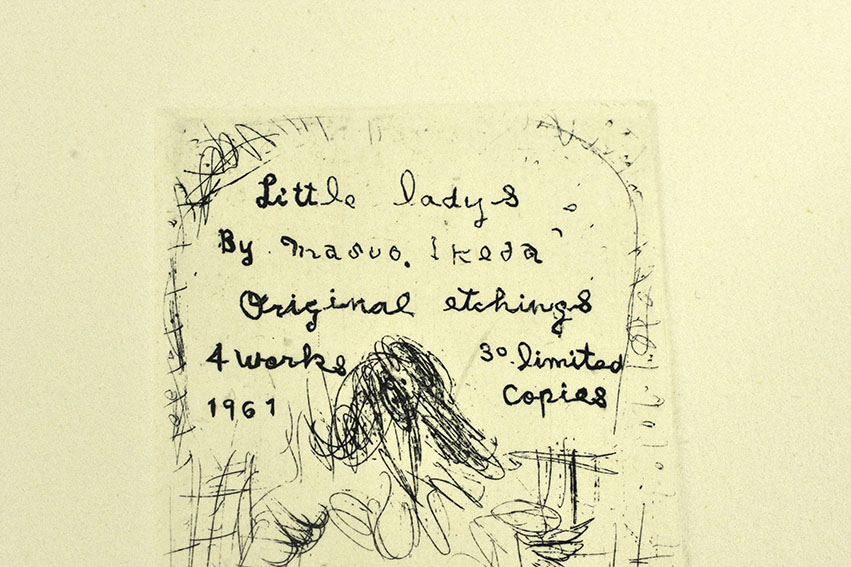 Little ladys
By masuo. Ikeda
Original etchings
4 works 30. limited
1961 Copies